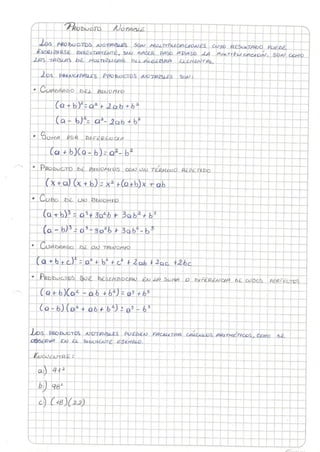 PRODUCTO NOTABLE
LOS PRODUCTOS NOTABLES SON MULTIPLICACIONES CUYO RESULTADO PUEDE
ESCRIBIRSE DIRECTAMENTE, SIN HACER PASO A PASO LA MULTIPLICACIÓN, SON COMO
LAS TABLAS DE MULTIPLICAR DEL ÁLGEBRA ELEMENTAL.
LOS PRINCIPALES PRODUCTOS NOTABLES SON:
• CUADRADO DEL BINOMIO
(a+b)²=a²+2ab+b²
(a-b)²=a²-2ab+b²
• SUMA POR DIFERENCIA
(a+b)(a-b)=a²-b²
• PRODUCTO DE BINOMIOS CON UN TÉRMINO REPETIDO
(x+a)(x+b)=x²+(a+b)x+ab
• CUBO DE UN BINOMIO
(a+b)³=a³+3a²b+3ab²+b³
(a-b)³=a³-3a²b+3ab²-b³
• CUADRADO DE UN TRINOMIO
(a+b+c)²=a²+b²+c²+2ab+2ac+2bc
• PRODUCTOS QUE DESEMBOCAN EN LA SUMA O DIFERENCIA DE CUBOS PERFECTOS
(a+b)(a²-ab+b²)=a³+b³
(a-b)(a²+ab+b²)=a³-b³
LOS PRODUCTOS NOTABLES PUEDEN FACILITAR CÁLCULOS ARITMÉTICOS, COMO SE
OBSERVA EN EL SIGUIENTE EJEMPLO.
ENCUENTRE:
a) 41²
b) 98²
c) (18)(22)